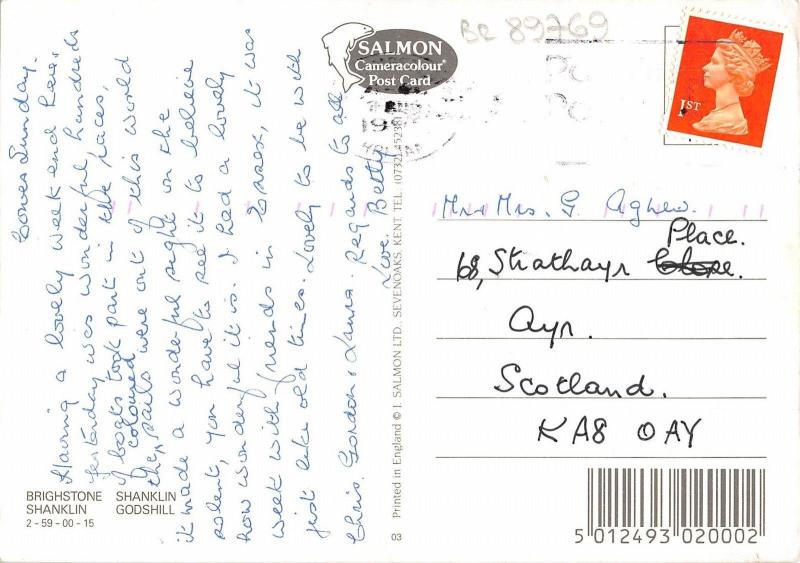 Cowes Sunday.
Having a lovely week end here,
yesterday was wonderful hundreds
of boats took part in the races,
coloured
the sails were out of this world
it made a wonderful sight on the
solent, you have to see it to believe
how wonderful it is. I had a lovely
week with friends in Essex, it was
just like old times. Lovely to be with
Chris, Gordon & Laura. Regards to all
Love. Betty
BRIGHSTONE SHANKLIN
SHANKLIN GODSHILL
2-59-00-15
SALMON
Cameracolour®
Post Card
Printed in England © J. SALMON LTD., SEVENOAKS, KENT. TEL. (0732) 452381
03
BR 89769
1ST
Mr & Mrs. G. Agnew.
Place.
68, Strathayr Close.
Ayr.
Scotland.
KA8 0AY
5 012493 020002